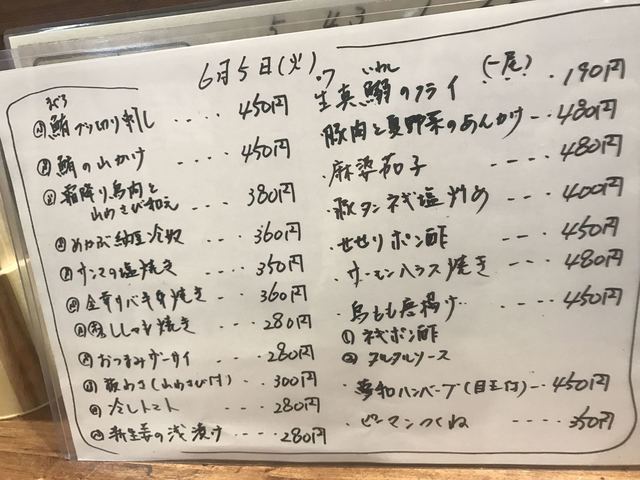 6月5日(火)
まぐろ
鮪ブツ切り刺し ・・・・ 450円
鮪の山かけ ・・・・ 450円
霜降り鳥肉と
山わさび和え ・・・ 380円
めかぶ納豆冷奴 ・・・ 360円
サンマの塩焼き ・・・・ 350円
・・・ 360円
ししゃも焼き ・・・ 280円
おつまみザーサイ ・・・ 280円
板わさ(山わさび付) ・・・ 300円
冷しトマト ・・・ 280円
新生姜の浅漬け ・・・・ 280円
いわし
生真鰯のフライ (一尾) ・・・ 190円
豚肉と夏野菜のあんかけ -- 480円
・麻婆茄子 ---- 480円
・豚タンネギ塩炒め --- 400円
・せせりポン酢 --- 450円
・サーモンハラス焼き --- 480円
・鳥もも唐揚げ ---- 450円
① ネギポン酢
② タルタルソース
ハンバーグ(目玉付) -- 450円
・ピーマンつくね ---- 350円